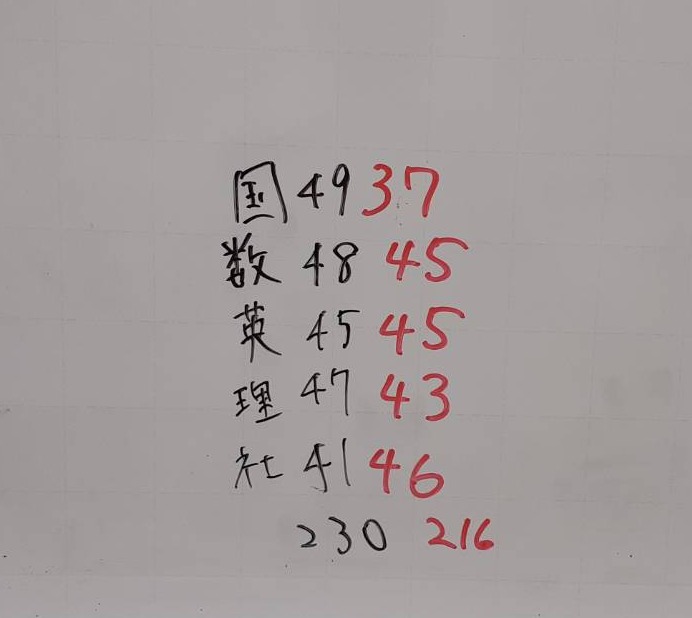 国 49 37
数 48 45
英 45 45
理 47 43
社 41 46
230 216